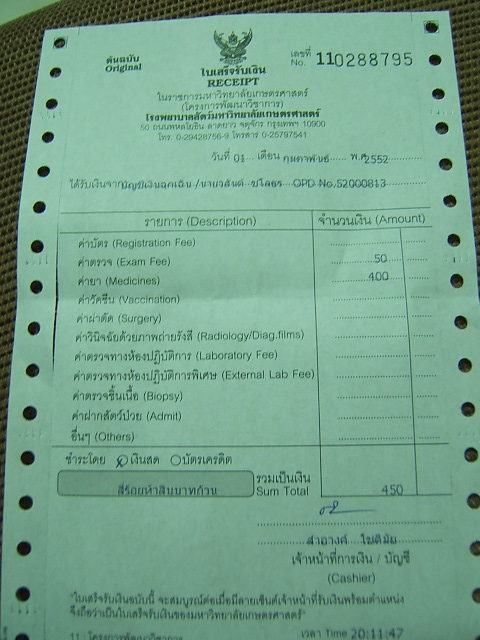 ต้นฉบับ
Original
เลขที่
No. 110288795
ใบเสร็จรับเงิน
RECEIPT
ในราชการมหาวิทยาลัยเกษตรศาสตร์
(โครงการพัฒนาวิชาการ)
โรงพยาบาลสัตว์มหาวิทยาลัยเกษตรศาสตร์
50 ถนนพหลโยธิน ลาดยาว จตุจักร กรุงเทพฯ 10900
โทร. 0-29428756-9 โทรสาร 0-25797541
วันที่ 01 เดือน กุมภาพันธ์ พ.ศ. 2552
ได้รับเงินจาก OPD No.52000813
รายการ (Description) จำนวนเงิน (Amount)
ค่าบัตร (Registration Fee)
ค่าตรวจ (Exam Fee) 50
ค่ายา (Medicines) 400
ค่าวัคซีน (Vaccination)
ค่าผ่าตัด (Surgery)
ค่าวินิจฉัยด้วยภาพถ่ายรังสี (Radiology/Diag.films)
ค่าตรวจทางห้องปฏิบัติการ (Laboratory Fee)
ค่าตรวจทางห้องปฏิบัติการพิเศษ (External Lab Fee)
ค่าตรวจชิ้นเนื้อ (Biopsy)
ค่าฝากสัตว์ป่วย (Admit)
อื่นๆ (Others)
ชำระโดย เงินสด บัตรเครดิต
สี่ร้อยห้าสิบบาทถ้วน
รวมเป็นเงิน
Sum Total 450
สำอางค์ โชติมัย
เจ้าหน้าที่การเงิน / บัญชี
(Cashier)
"ใบเสร็จรับเงินฉบับนี้ จะสมบูรณ์ต่อเมื่อมีลายเซ็นต์เจ้าหน้าที่รับเงินพร้อมตำแหน่ง
จึงถือว่าเป็นใบเสร็จรับเงินของมหาวิทยาลัยเกษตรศาสตร์"
11 : โครงการพัฒนาวิชาการ เวลา Time 20:11:47